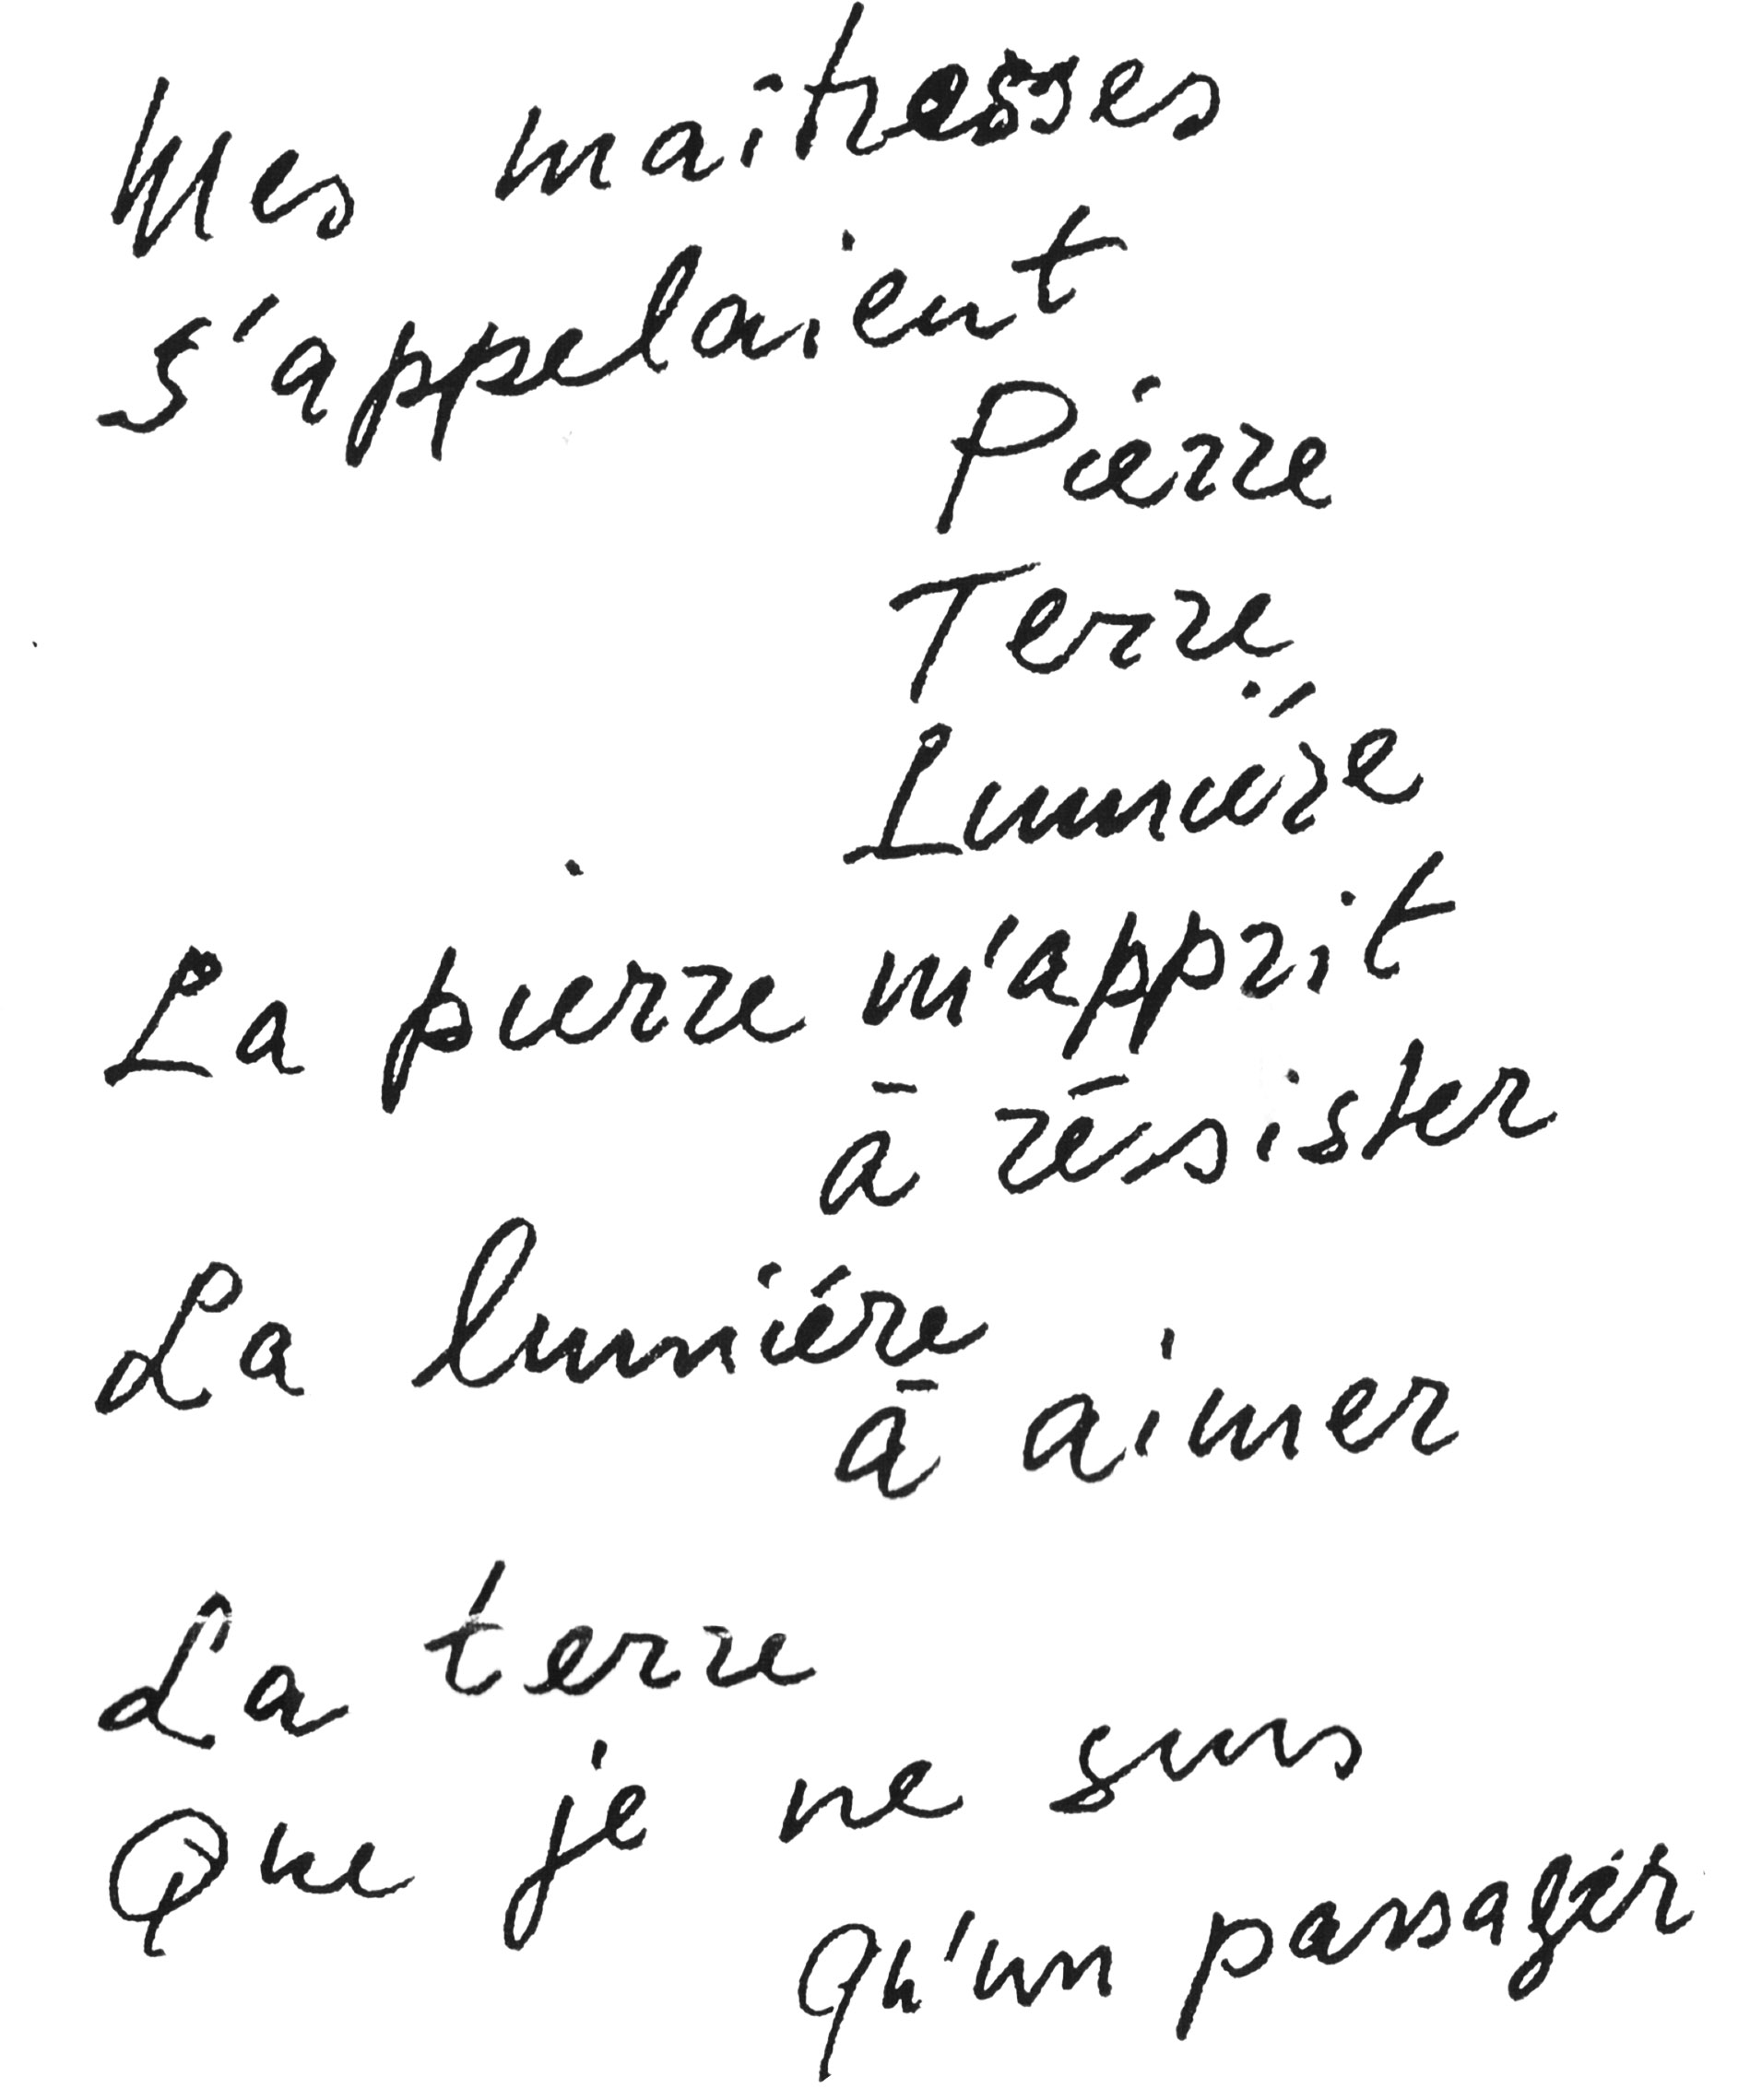 Mes maitresses
s'appelaient
Pierre
Terre
Lumière
La pierre m'apprit
à résister
La lumière
à aimer
La terre
Que je ne suis
Qu'un passager